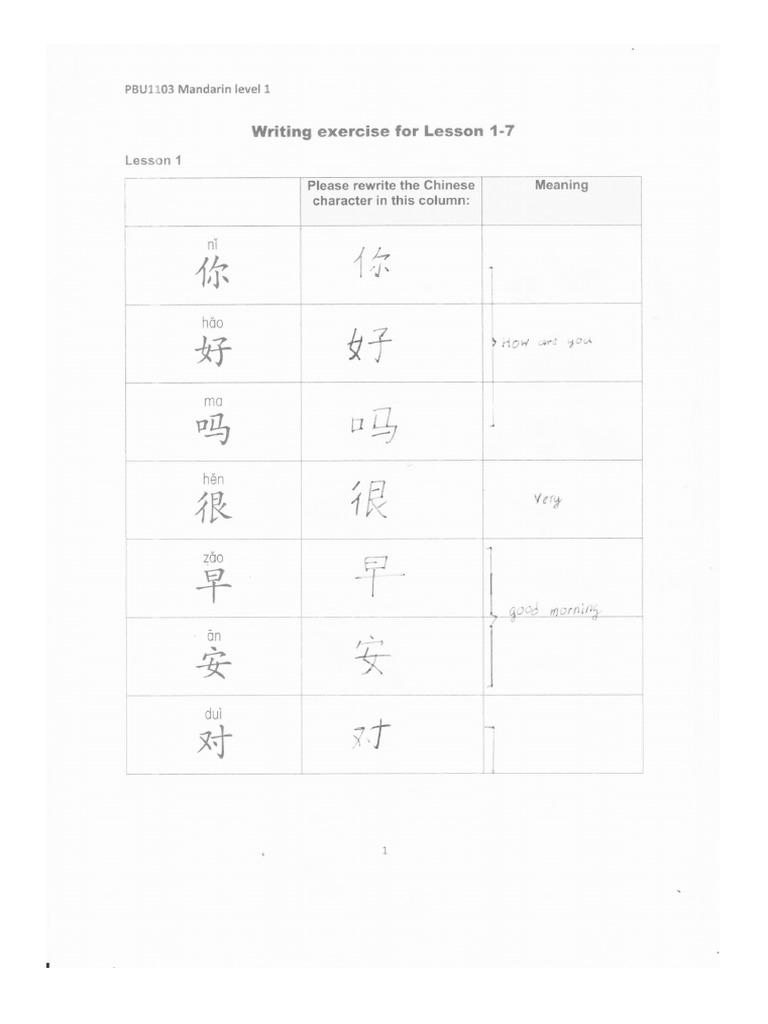 PBU1103 Mandarin level 1
Writing exercise for Lesson 1-7
Lesson 1
Please rewrite the Chinese character in this column:
Meaning
nǐ
你
你
hāo
好
好
How are you
ma
吗
吗
hěn
很
很
Very
zǎo
早
早
good morning
ān
安
安
duì
对
对
1